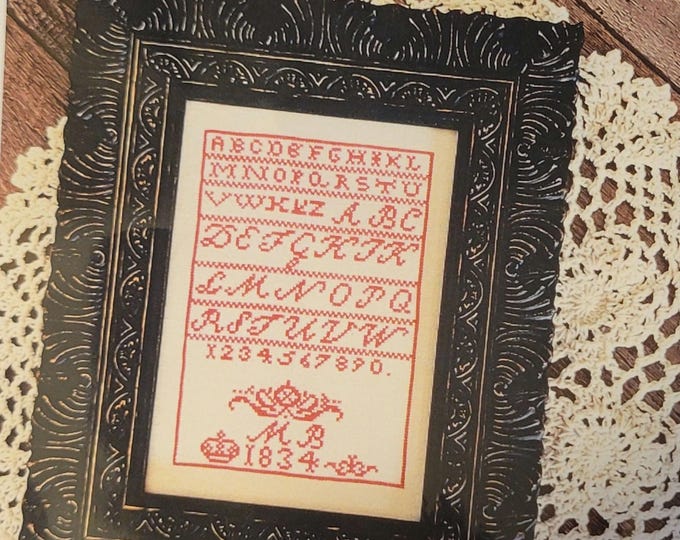 ABCDEFGHIKL
MNNOPQRSTU
VWXYZ ABC
DEFGHIK
LMNOPQ
RSTUVW
1234567890.
MB
1834